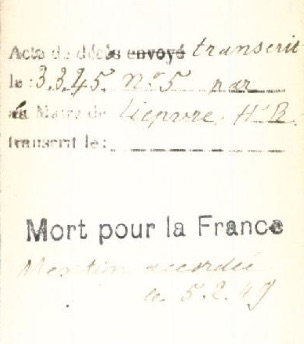 Acte de décès envoyé transcrit
le : 3.3.45. N° 5 par
la Mairie de Liepvre. Ht R.
transcrit le :
Mort pour la France
Mention accordée
le 5.2.49